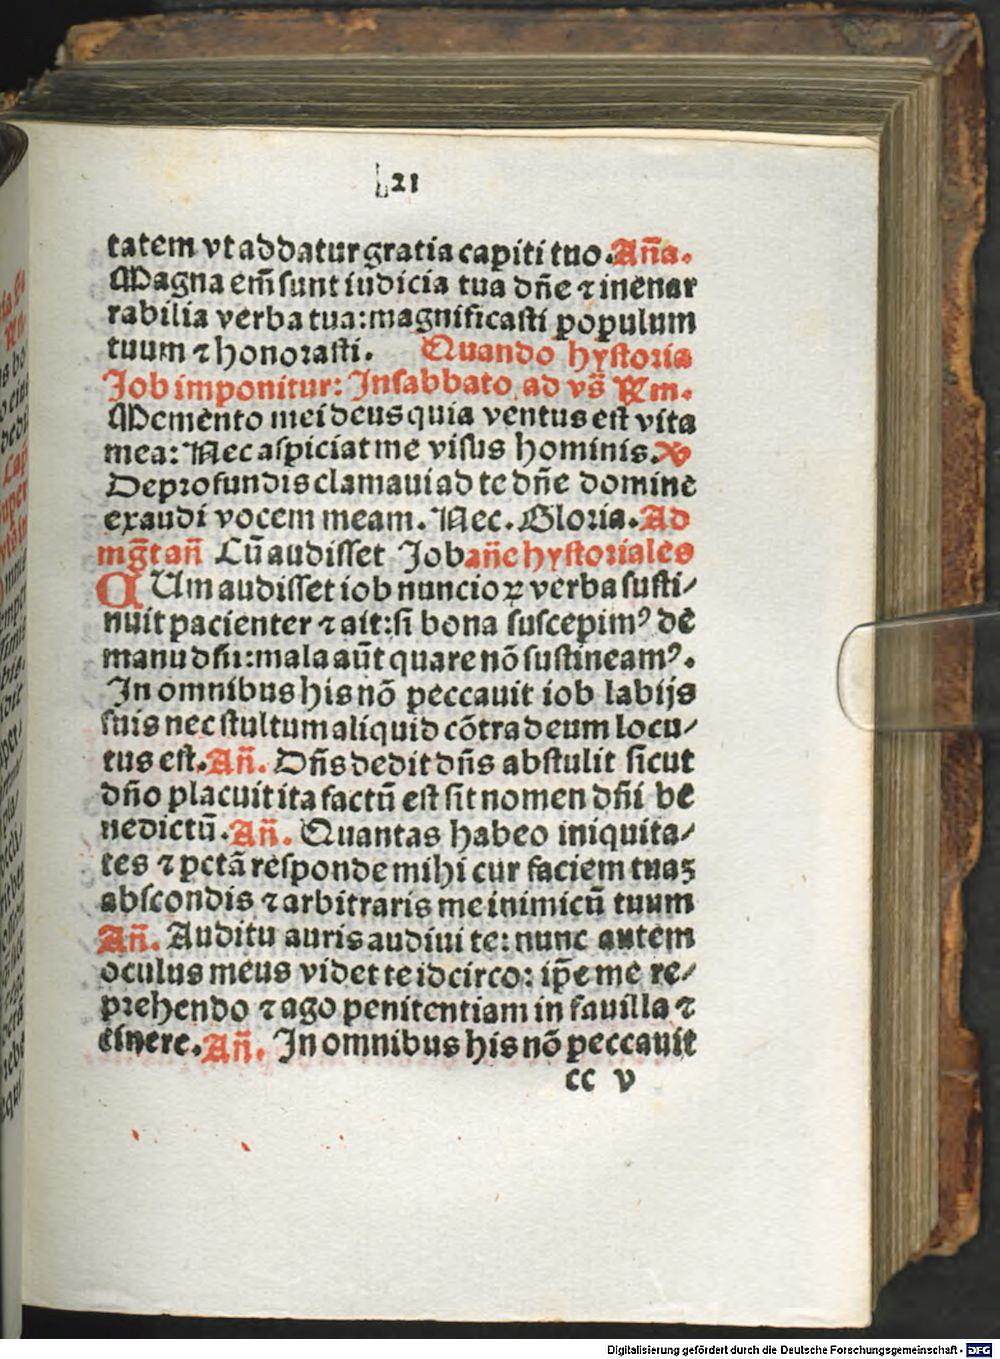 21
tatem vt addatur gratia capiti tuo. Aña.
Magna em̄ sunt iudicia tua dñe ⁊ inenar
rabilia verba tua: magnificasti populum
tuum ⁊ honorasti. Quando hystoria
Job imponitur: In sabbato ad vs̄ Rm.
Memento mei deus quia ventus est vita
mea: Nec aspiciat me visus hominis. V
De profundis clamaui ad te dñe domine
exaudi vocem meam. Nec. Gloria. Ad
mg̅t añ Cū audisset Job añe hystoriales
CUm audisset iob nuncioꝝ verba susti/
nuit pacienter ⁊ ait: si bona suscepimꝰ de
manu dñi: mala aūt quare nō sustineamꝰ.
In omnibus his nō peccauit iob labijs
suis nec stultum aliquid cōtra deum locu/
tus est. Añ. Dñs dedit dñs abstulit sicut
dño placuit ita factū est sit nomen dñi be
nedictū. Añ. Quantas habeo iniquita/
tes ⁊ pctā responde mihi cur faciem tuaꝫ
abscondis ⁊ arbitraris me inimicū tuum
Añ. Auditu auris audiui te: nunc autem
oculus meus videt te idcirco: ip̄e me re/
prehendo ⁊ ago penitentiam in fauilla ⁊
cinere. Añ. In omnibus his nō peccauit
cc v
Digitalisierung gefördert durch die Deutsche Forschungsgemeinschaft - DFG